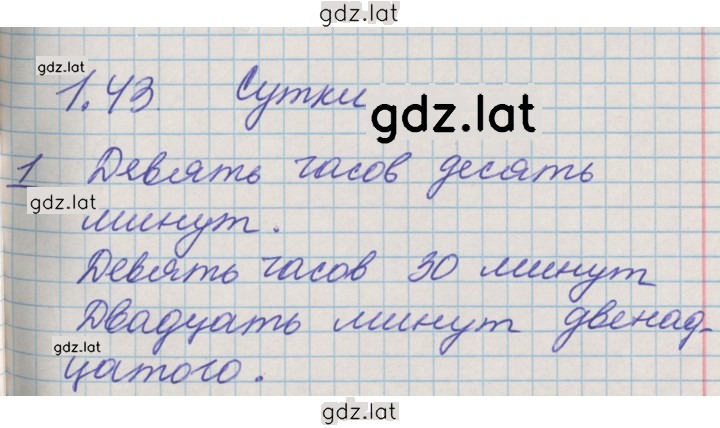 gdz.lat
gdz.lat
1.43. Сутки
gdz.lat
1 Девять часов десять
gdz.lat
минут.
Девять часов 30 минут
Двадцать минут двенад-
gdz.lat
цатого.
gdz.lat